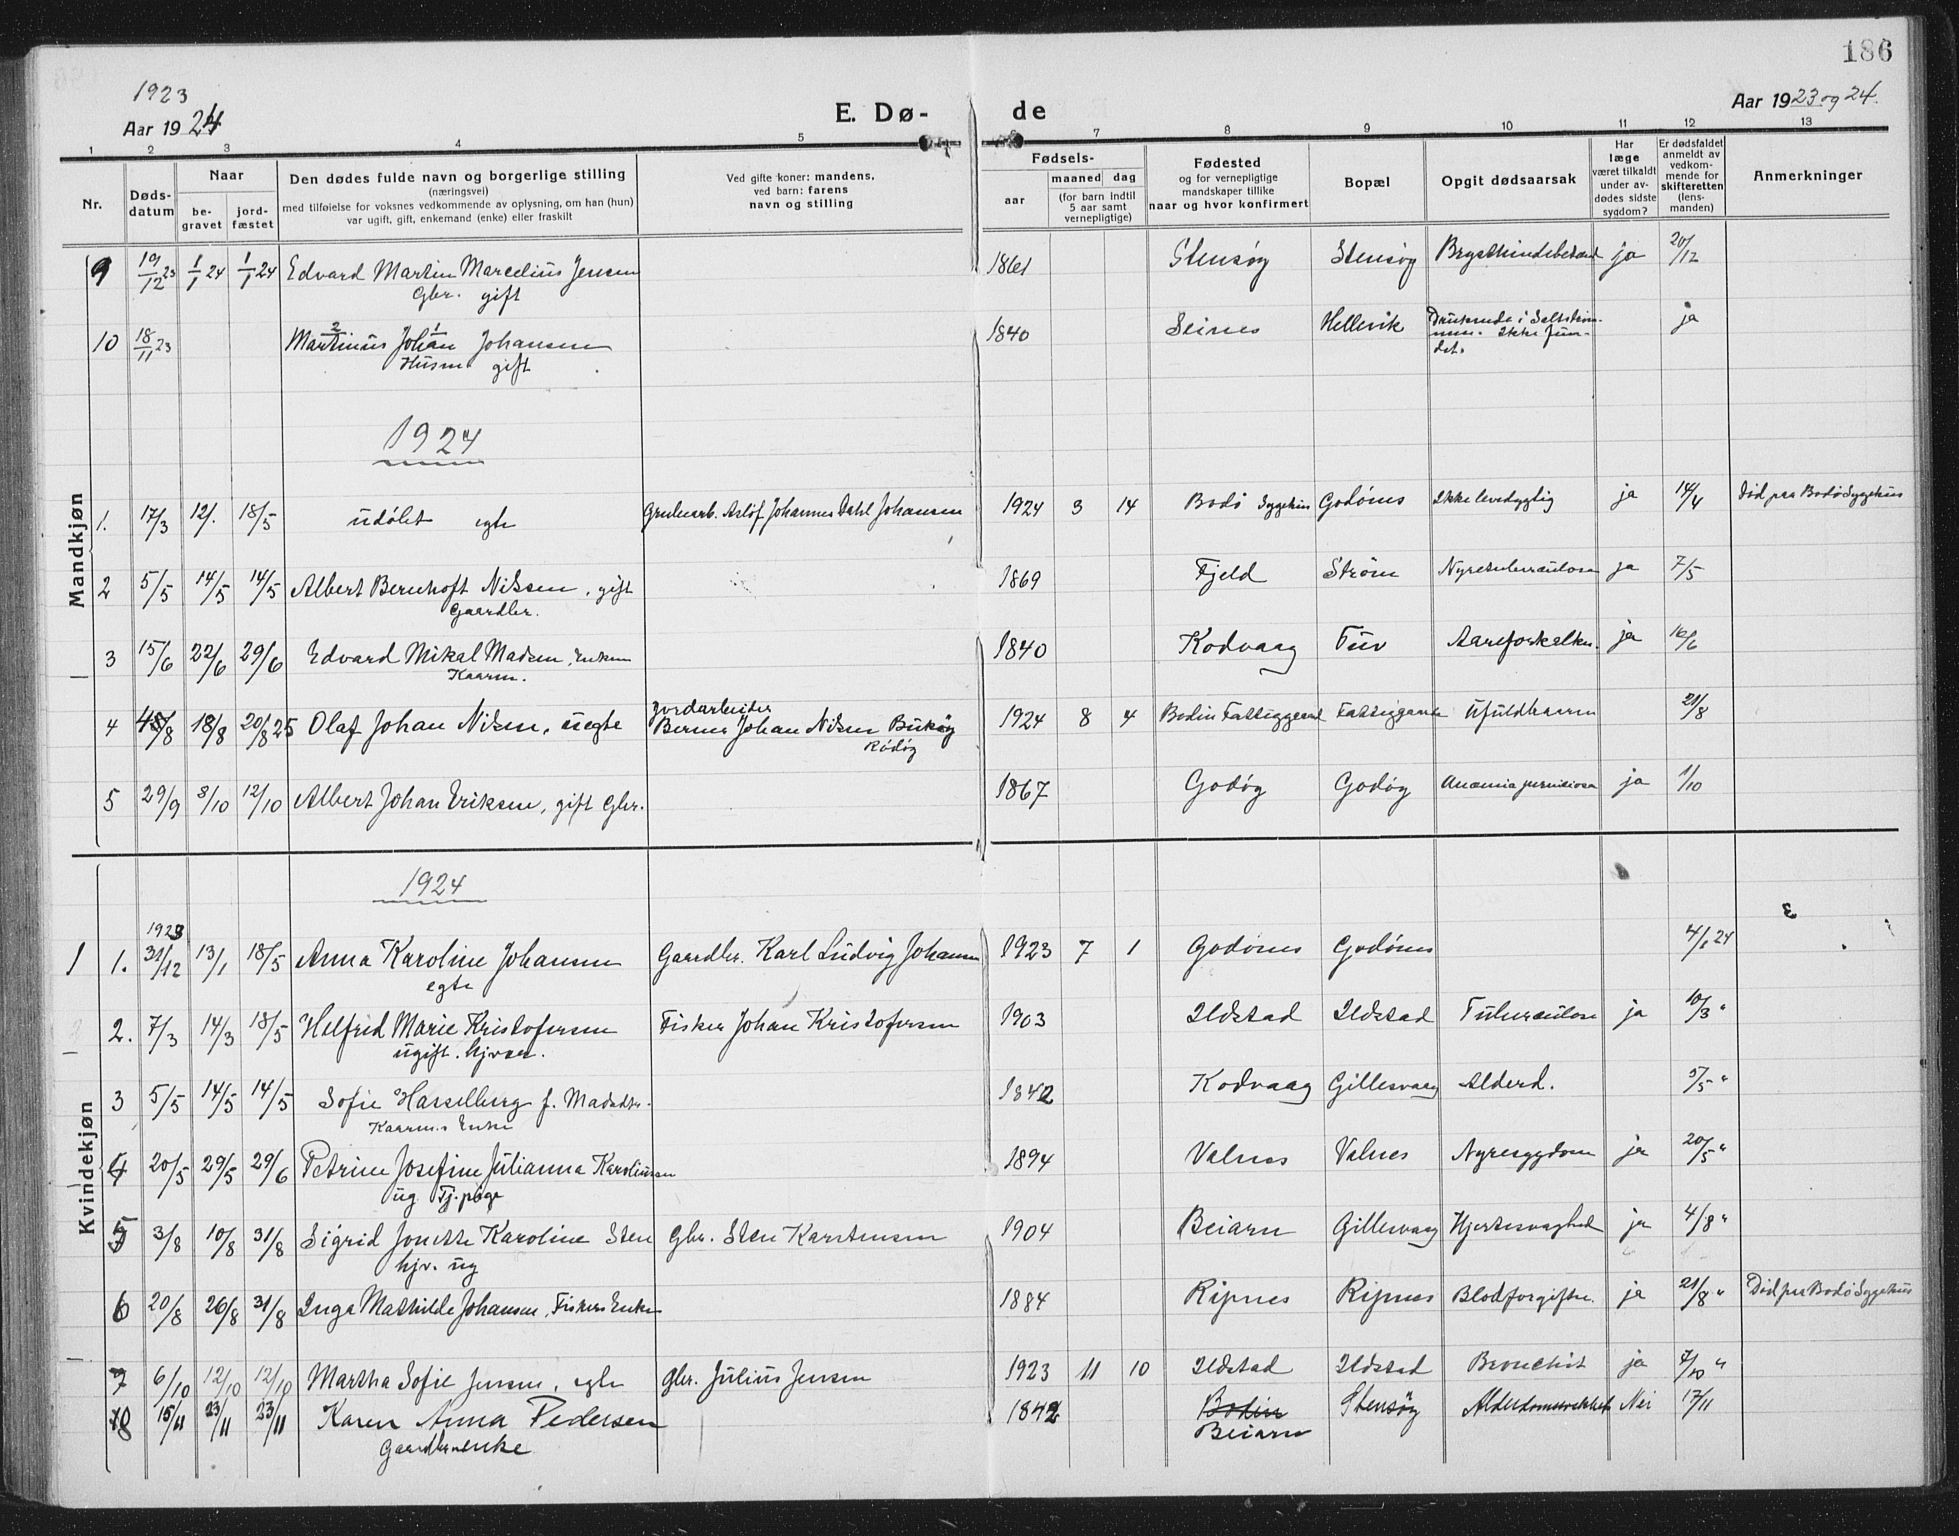 186
1923
Aar 1924
E. Dø-
de
Aar 1923 og 24.
1 2 3 4 5 6 7 8 9 10 11 12 13
Nr.
Døds-
datum
Naar
be-
gravet
jord-
fæstet
Den dødes fulde navn og borgerlige stilling
(næringsvei)
med tilføielse for voksnes vedkommende av oplysning, om han (hun)
var ugift, gift, enkemand (enke) eller fraskilt
Ved gifte koner: mandens,
ved barn: farens
navn og stilling
Fødsels-
aar
maaned dag
(for barn indtil
5 aar samt
vernepligtige)
Fødested
og for vernepligtige
mandskaper tillike
naar og hvor konfirmert
Bopæl
Opgit dødsaarsak
Har
læge
været tilkaldt
under av-
dødes sidste
sygdom?
Er dødsfaldet
anmeldt av
vedkom-
mende for
skifteretten
(lens-
manden)
Anmerkninger
Mandkjøn
9 19/12 23 1/1 24 1/1 24 Edvard Martin Marcelius Jensen 1861 Stensøy Stensøy ja 20/12
Gbr. gift
2 1
10 18/11 23 Martinus Johan Johansen 1840 Seines Hellevik Druknede i Saltstrøm-
men. Ikke fun-
det. ja
Husm. gift
1924
1. 17/3 12/. 18/5 udøbt egte Johannes Dahl Johansen 1924 3 14 Bodø Sygehus Godønes Ikke levedygtig ja 14/4 Død paa Bodø Sygehus
2 5/5 14/5 14/5 Albert Bernhoft Nilsen, gift 1869 Fjeld Strøm Nyretuberculose ja 7/5
Gaardbr.
3 15/6 22/6 29/6 Edvard Mikal Madsen, Enkem 1840 Kodvaag Tuv Aareforkalkn. ja 16/6
Kaarm.
Jordarbeider
4 18/8 20/8 25 Olaf Johan Nilsen, uegte Johan Nilsen Bukøy 1924 8 4 Bodin Fattiggaard Fattiggaard Ufuldbaaren 21/8
Rødøy
5 29/9 8/10 12/10 Albert Johan Eriksen, gift Gbr. 1867 Godøy Godøy Anæmia perniciosa ja 1/10
Kvindekjøn
1924
1923
1 1. 31/12 13/1 18/5 Anna Karoline Johansen Gaardbr. Karl Ludvig Johansen 1923 7 1 Godønes Godønes 4/1 24
egte
2. 7/3 14/3 18/5 Helfrid Marie Kristofersen Fisker Johan Kristofersen 1903 Ildstad Ildstad Tuberculose ja 10/3 "
ugift. hjv.
3 5/5 14/5 14/5 Sofie Hasselberg f. Madsdtr. 1842 Kodvaag Gillesvaag Alderd. 5/5 "
Kaarm.s Enke
4 20/5 29/5 29/6 Petrine Josefine Julianna Karoliussen 1894 Valnes Valnes Nyresygdom ja 20/5 "
ug Tj.pige
5 3/8 10/8 31/8 Sigrid Jonette Karoline Sten Gbr. Sten Karstensen 1904 Beiarn Gillesvaag Hjertesvaghed ja 4/8 "
hjv. ug
6 20/8 26/8 31/8 Inga Mathilde Johansen, Fiskers Enke 1884 Ripnes Ripnes Blodforgiftn. ja 21/8 " Død paa Bodø Sygehus
7 6/10 12/10 12/10 Martha Sofie Jensen, egte Gbr. Julius Jensen 1923 11 10 Ildstad Ildstad Bronchit ja 7/10 "
8 15/11 23/11 23/11 Karen Anna Pedersen 1842 Bodin Stensøy Alderdomssvakhet Nei 17/11
Gaardbr.enke Beiarn